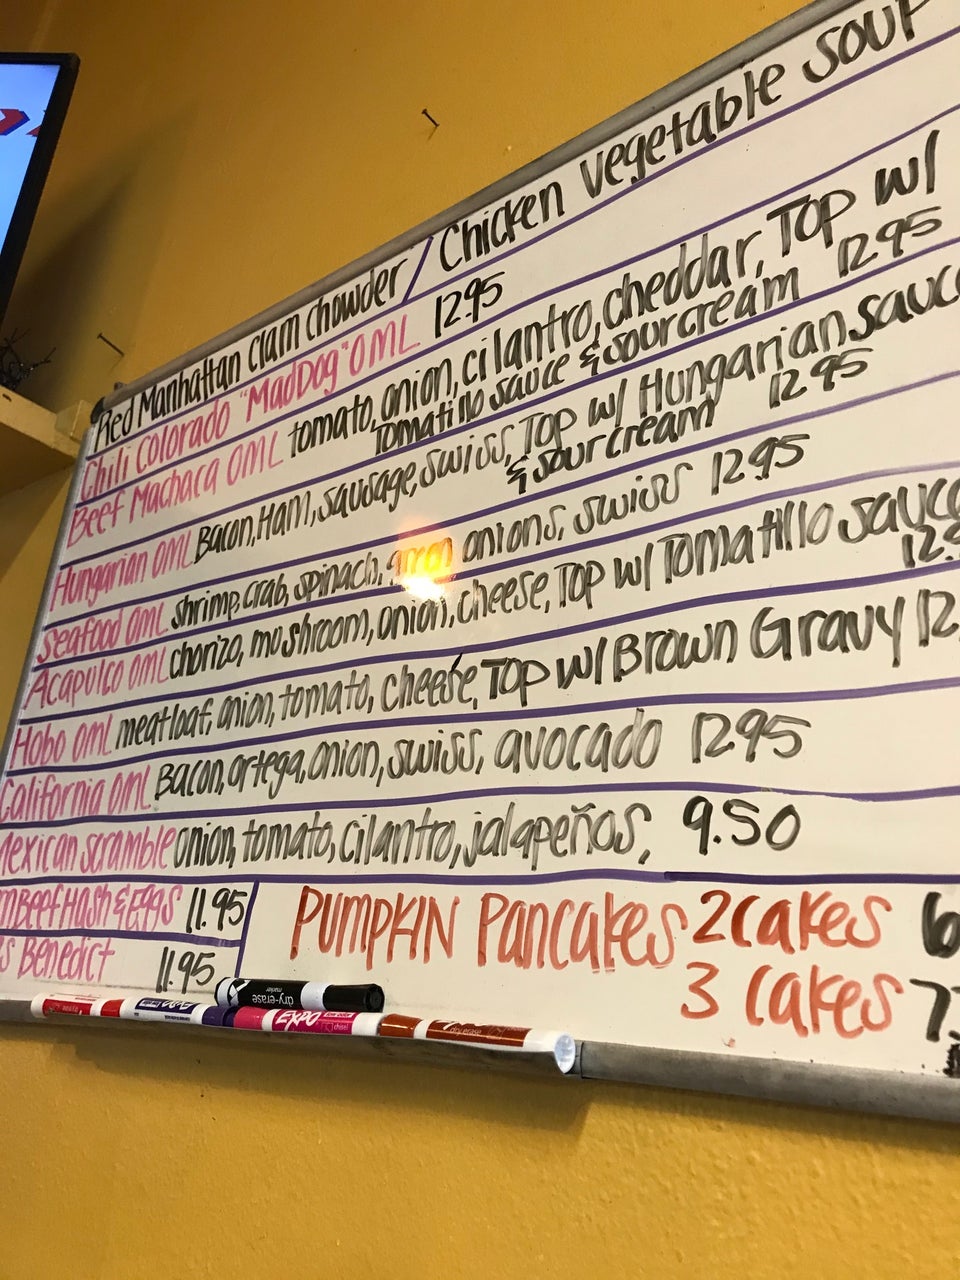 Red Manhattan clam chowder / Chicken Vegetable Soup
Chili Colorado "MadDog" OML 12.95
Beef Machaca OML tomato, onion, cilantro, cheddar, Top w/
Tomatillo sauce & sourcream 12.95
Hungarian OML Bacon, Ham, sausage, swiss, Top w/ Hungarian sauce
& sourcream 12.95
Seafood OML shrimp, crab, spinach, green onions, swiss 12.95
Acapulco OML chorizo, mushroom, onion, cheese, Top w/ Tomatillo sauce
12.9
Hobo OML meatloaf, onion, tomato, cheese, Top w/ Brown Gravy 12.
California OML Bacon, ortega, onion, swiss, avocado 12.95
Mexican scramble onion, tomato, cilantro, jalapeños, 9.50
Beef Hash & Eggs 11.95
Benedict 11.95
Pumpkin Pancakes 2 cakes 6
3 cakes 7
dry-erase
marker
EXPO
chisel